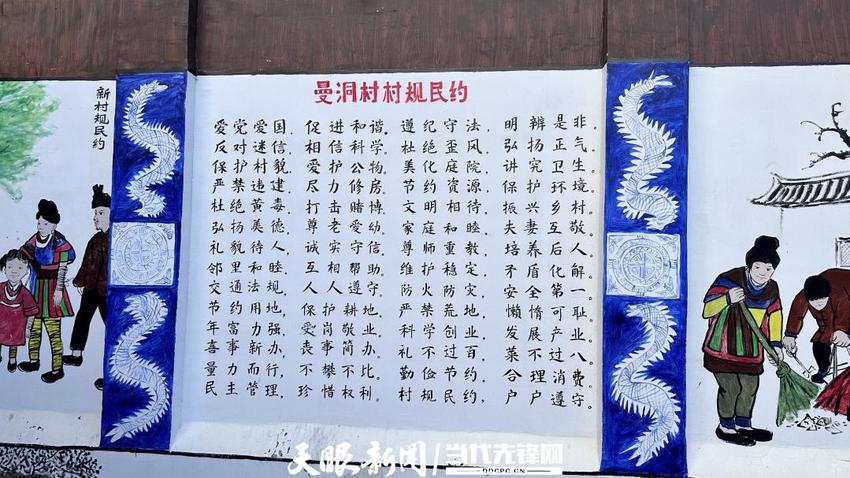 新村规民约
曼洞村村规民约
爱党爱国，促进和谐。遵纪守法，明辨是非。
反对迷信，相信科学。杜绝歪风，弘扬正气。
保护村貌，爱护公物。美化庭院，讲究卫生。
严禁违建，尽力修房。节约资源，保护环境。
杜绝黄毒，打击赌博。文明相待，振兴乡村。
弘扬美德，尊老爱幼。家庭和睦，夫妻互敬。
礼貌待人，诚实守信。尊师重教，培养后人。
邻里和睦，互相帮助。维护稳定，矛盾化解。
交通法规，人人遵守。防火防灾，安全第一。
节约用地，保护耕地。严禁荒地，懒惰可耻。
年富力强，爱岗敬业。科学创业，发展产业。
喜事新办，丧事简办。礼不过百，菜不过八。
量力而行，不攀不比。勤俭节约，合理消费。
民主管理，珍惜权利。村规民约，户户遵守。
天眼新闻/当代先锋网
DDCPC.CN